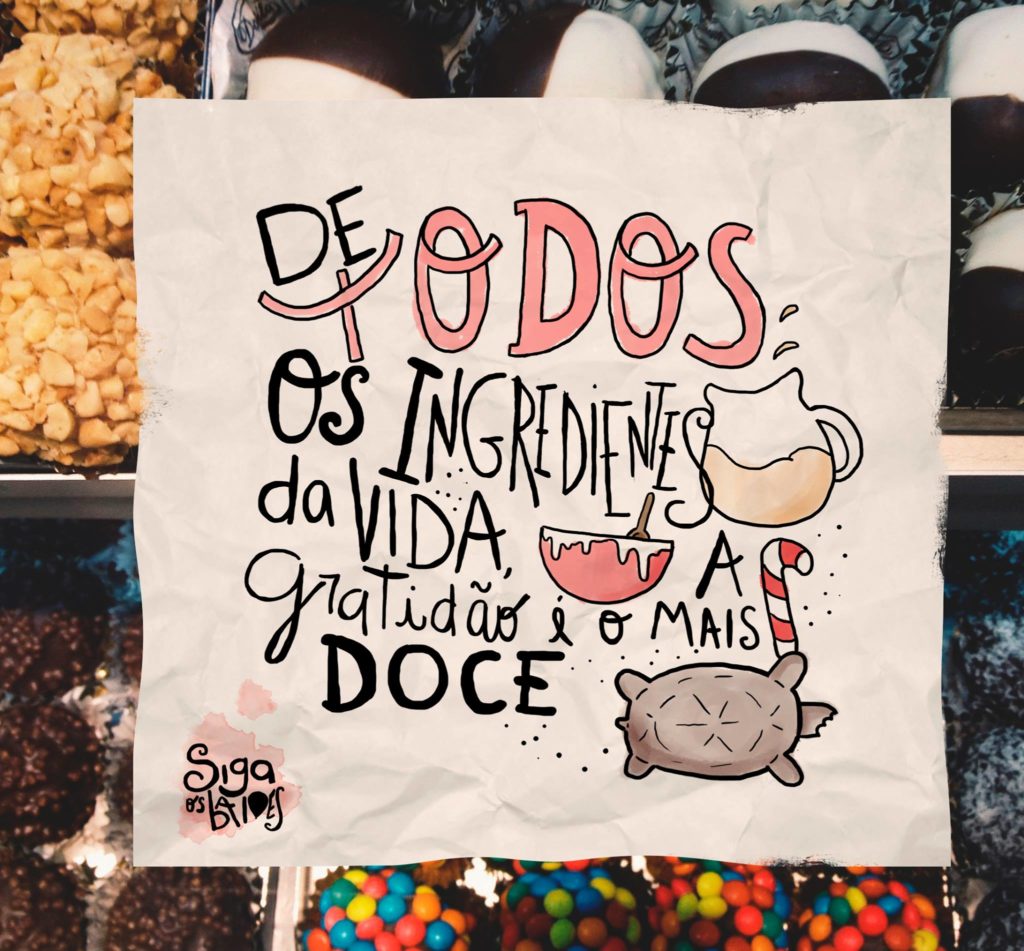 DE
TODOS
OS INGREDIENTES
da VIDA, A
gratidão é o MAIS
DOCE
Siga
os bALõES